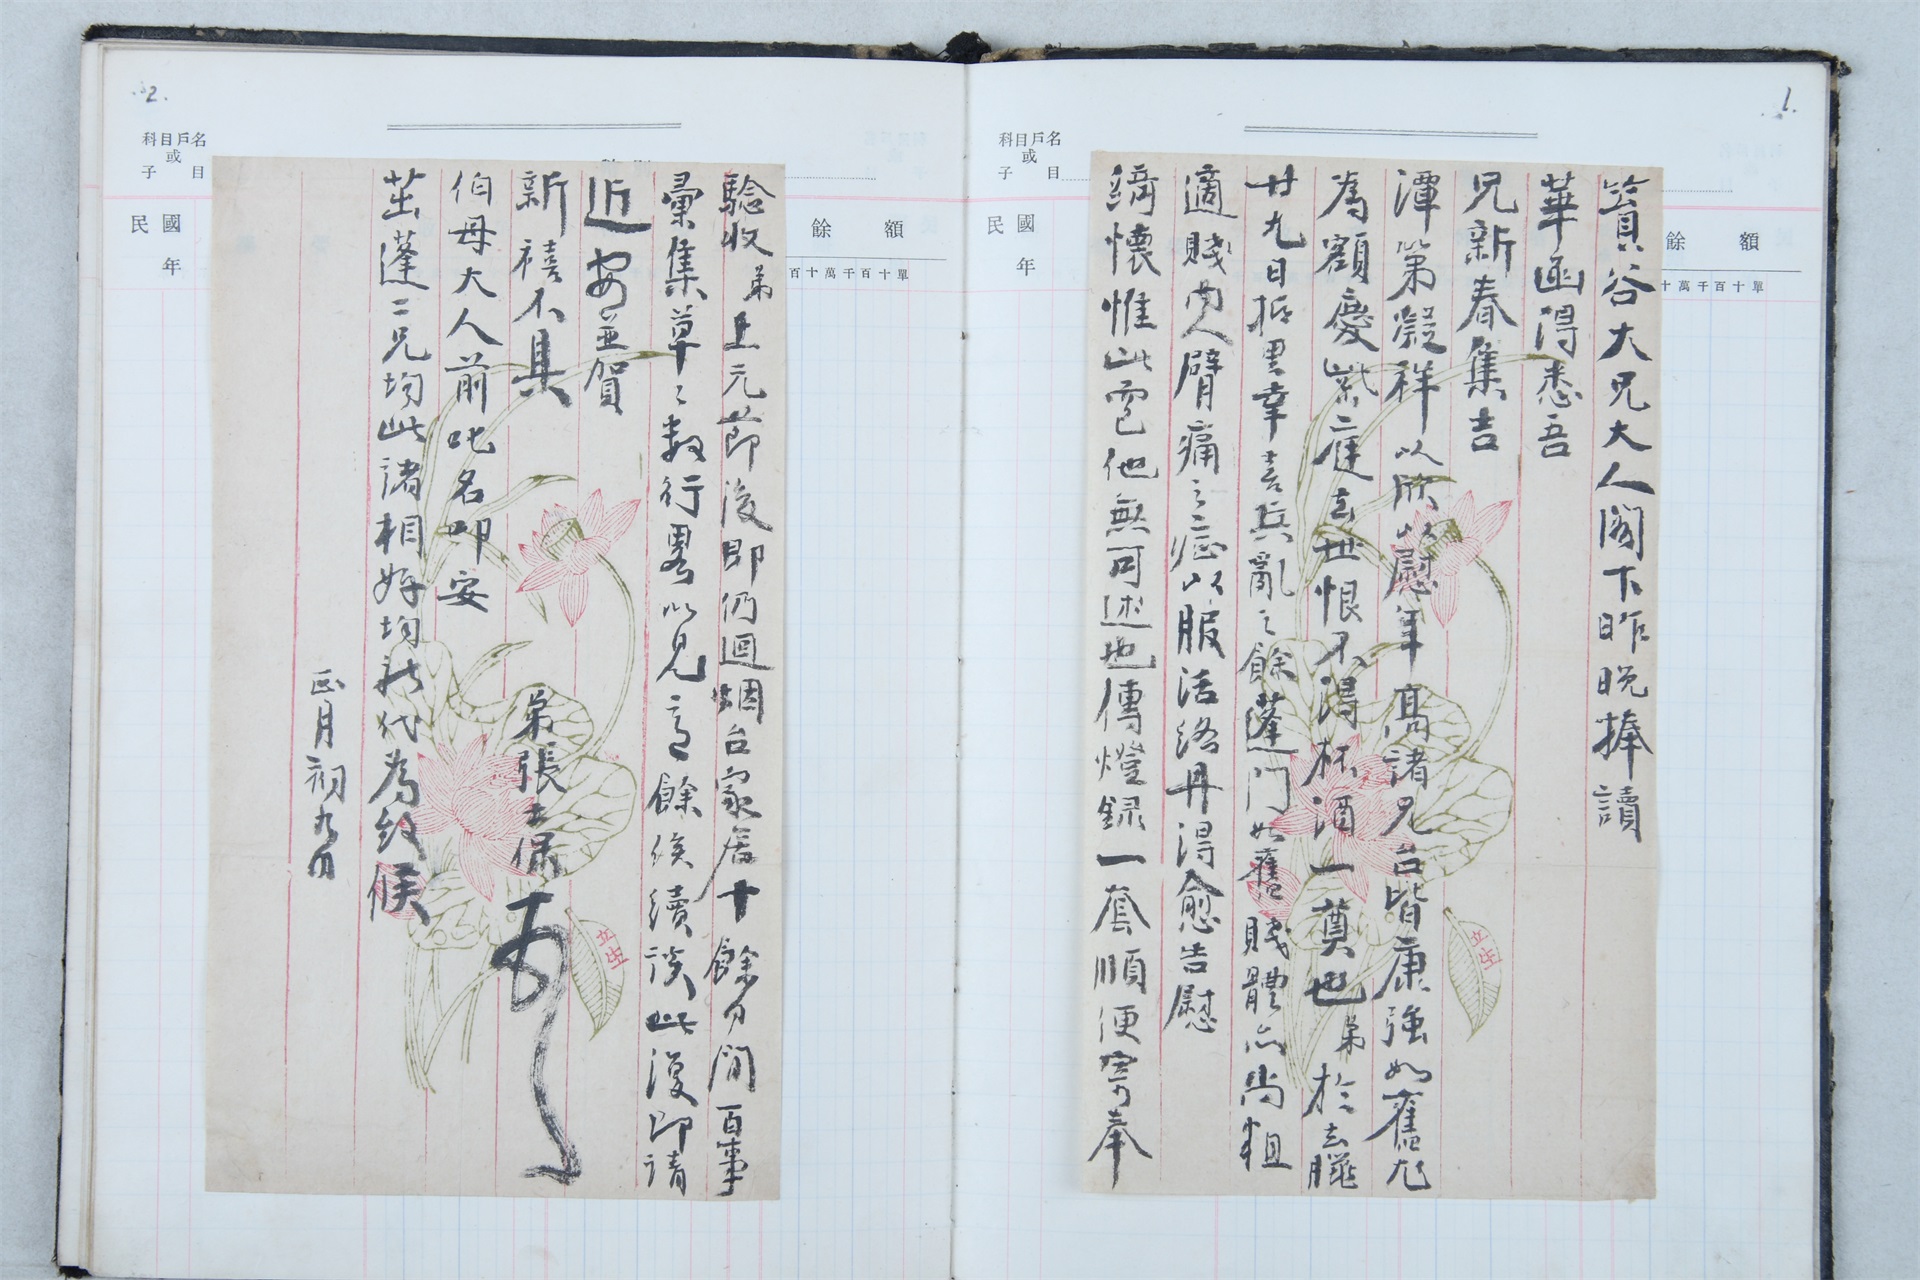 1.
科目戶名
或
子目
民國
年
餘額
十萬千百十單
篔谷大兄大人閣下昨晚捧讀
華函得悉吾
兄新春集吉
潭第凝祥以欣以慰年高諸兄台皆康強如舊尤
為額慶紫蓮去世恨不得杯酒一奠也弟於去臘
廿九日抵里幸喜兵亂之餘蓬門如舊賤體亦尚粗
適賤內人臂痛之症以服活絡丹得愈告慰
綺懷惟此而已他無可述也傳燈録一套順便寄奉
2.
科目戶名
或
子目
民國
年
餘額
百十萬千百十單
驗收弟上元節後即仍迴烟台家居十餘日間百事
彙集草々数行畧以見意餘俟續談此復即請
近安並賀
新禧不具
弟張士保
伯母大人前叱名叩安
茁蓬二兄均此諸相好均祈代為致候
正月初九日